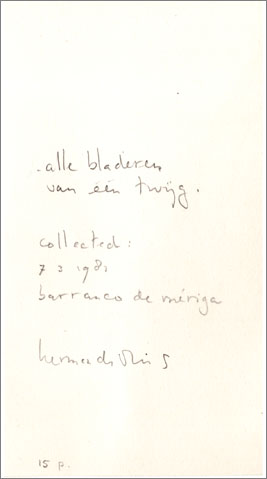 alle bladeren
van één twijg.
collected:
7 3 1981
barranco de mériga
herman de vries
15 p.